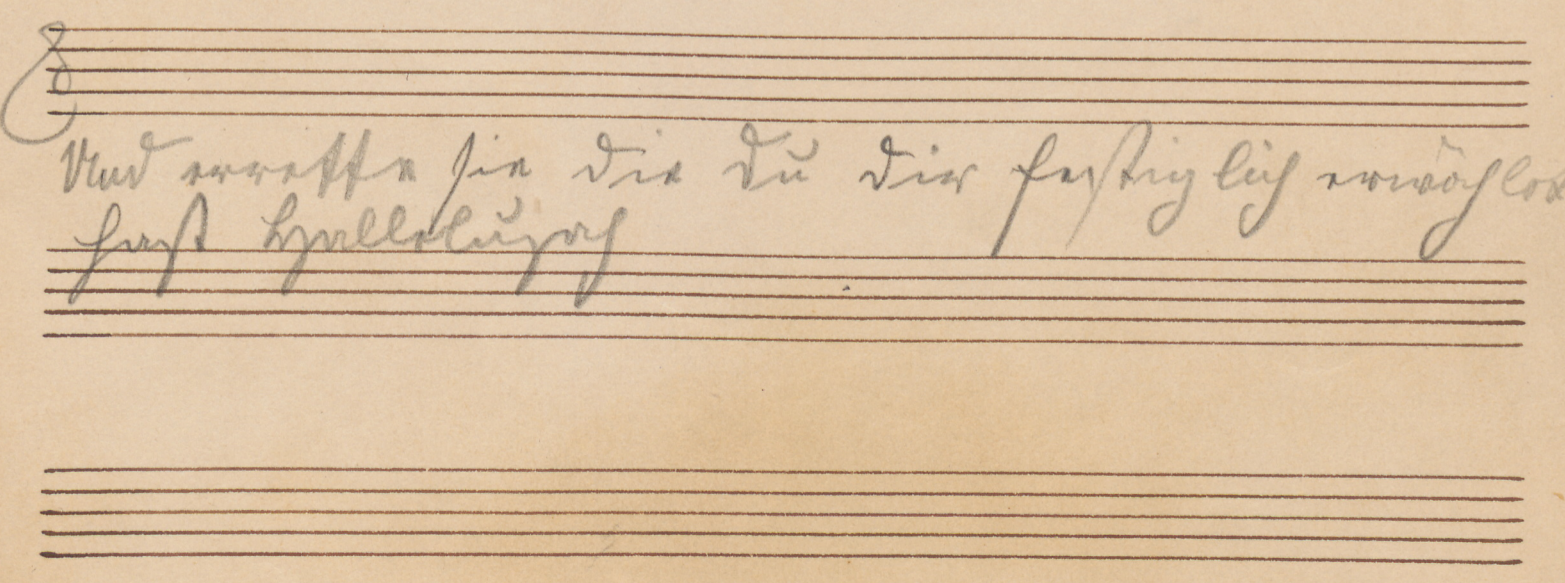 Und errette sie die du dir festiglich erwählet
hast Hallelujah